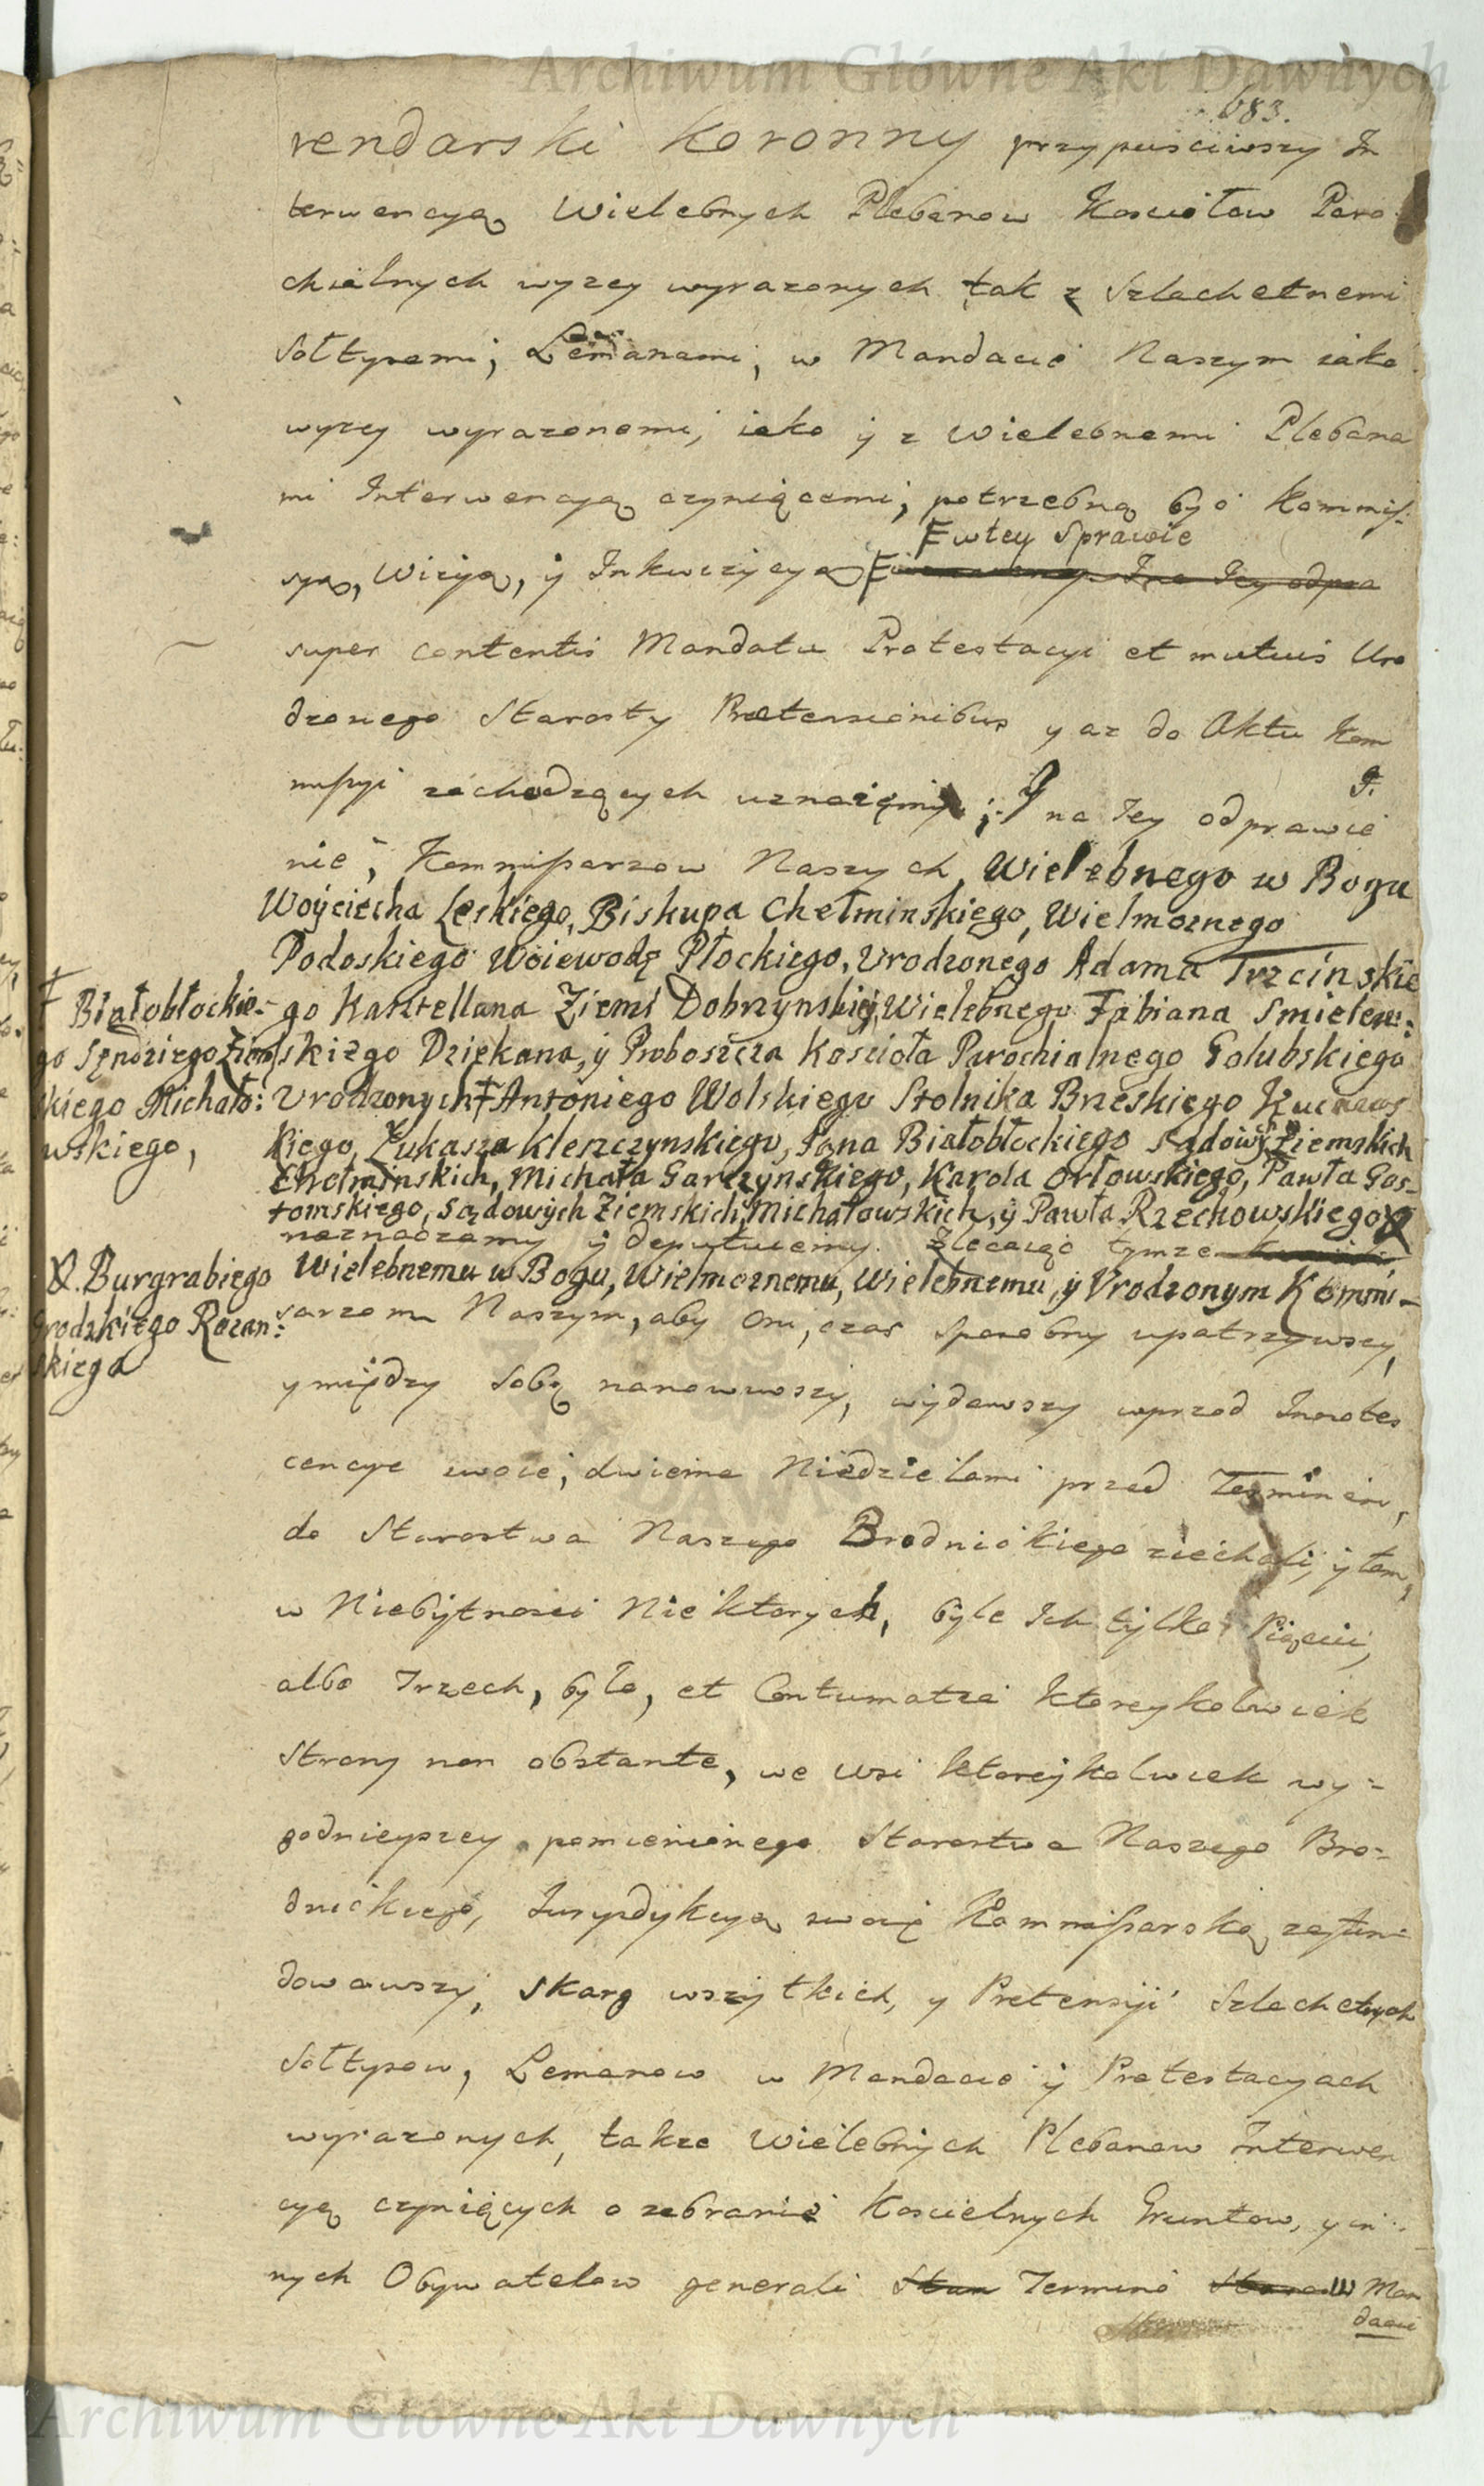 Archiwum Główne Akt Dawnych
683.
rendarski Koronny przypusciwszy In
terwencyą Wielebnych Plebanow Kosciołow Paro
chialnych wyzey wyrazonych tak z Szlachetnemi
Sołtysami, Lemanami, w Mandacie Naszym iako
wyzey wyrazonemi, iako y z Wielebnemi Plebana
mi Interwencyą czyniącemi, potrzebną być Kommis:
F wtey Sprawie
syą, Wizyą, y Inkwizycyą F na Jey odpra
super contentis Mandatu Protestacyi et mutuis Uro
dzonego Starosty Prætensionibus y az do Aktu Kom
missyi zachodzących uznaiemy; I na Jey odprawie
nie, Kommissarzow Naszych, Wielebnego w Bogu
Woyciecha Leskiego, Biskupa Chełminskiego, Wielmoznego
Podoskiego Woiewodę Płockiego, Urodzonego Adama Trzcinskie
go Kasztellana Ziemi Dobrzynskiey, Wielebnego Fabiana Smielew:
skiego Dziekana, y Proboszcza Koscioła Parochialnego Golubskiego
Urodzonych ‡ Antoniego Wolskiego Stolnika Brzeskiego Kuiaws
kiego, Łukasza Kleszczynskiego, Jana Białobłockiego Sądowych Ziemskich
Chełminskich, Michała Garczynskiego, Karola Orłowskiego, Pawła Gos-
tomskiego, Sądowych Ziemskich Michałowskich, y Pawła Rzechowskiego
‡ Białobłockie-
go Sędziego Ziem
skiego Michało:
wskiego,
naznaczamy y deputuiemy. Zlecaiąc tymze
Wielebnemu w Bogu, Wielmoznemu, Wielebnemu, y Urodzonym Kommi-
Burgrabiego
Grodzkiego Rozan:
skiego
sarzom Naszym, aby Oni, czas sposobny upatrzywszy,
y między sobą namowiwszy, wydawszy wprzod Innotes
cencye swoie, dwiema Niedzielami przed Terminem,
do Starostwa Naszego Brodnickiego ziechali, y tam,
w Niebytnosci Niektorych, byle Ich tylko Pięciu,
albo Trzech, było, et Contumatia ktoreykolwiek
Strony non obstante, we Wsi ktoreykolwiek wy-
godnieyszey pomienionego Starostwa Naszego Bro-
dnickiego, Jurysdykcyą swoię Kommissarską zafun-
dowawszy, skarg wszytkich, y Pretensyi Szlachetnych
Sołtysow, Lemanow w Mandacie y Protestacyach
wyrazonych, takze Wielebnych Plebanow Interwen
cyę czyniących o zebranie Koscielnych Gruntow, y in
nych Obywatelow generali Termino w Man
dacie
Archiwum Główne Akt Dawnych